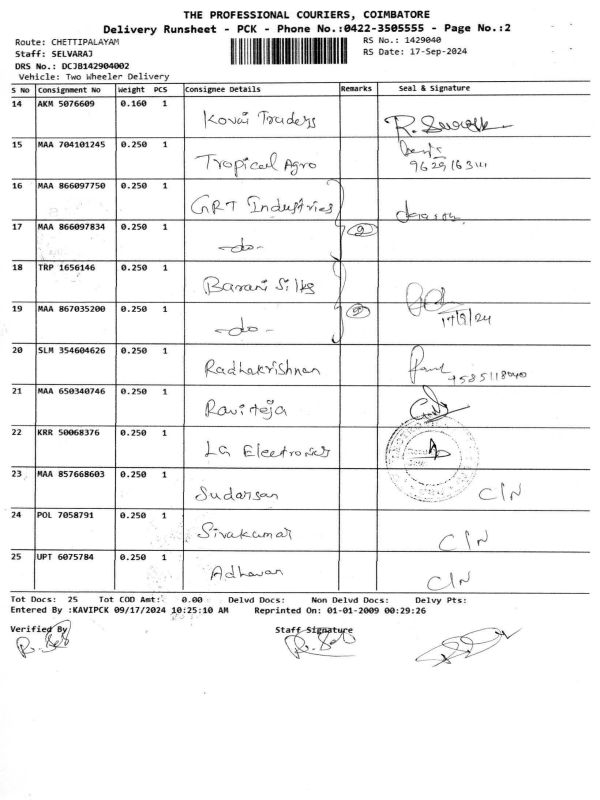 THE PROFESSIONAL COURIERS, COIMBATORE
Delivery Runsheet - PCK - Phone No.:0422-3505555 - Page No.:2
Route: CHETTIPALAYAM RS No.: 1429040
Staff: SELVARAJ RS Date: 17-Sep-2024
DRS No.: DCJB142904002
Vehicle: Two Wheeler Delivery
S No Consignment No Weight PCS Consignee Details Remarks Seal & Signature
14 AKM 5076609 0.160 1 Kovai Traders
15 MAA 704101245 0.250 1 Tropical Agro
16 MAA 866097750 0.250 1 GRT Industries
17 MAA 866097834 0.250 1 -do- 2
18 TRP 1656146 0.250 1 Barani Silks
19 MAA 867035200 0.250 1 -do- 17/9/24
20 SLM 354604626 0.250 1 Radhakrishnan
21 MAA 650340746 0.250 1 Raviteja
22 KRR 50068376 0.250 1 LG Electronics
23 MAA 857668603 0.250 1 Sudarsan C/N
24 POL 7058791 0.250 1 Sivakumar C/N
25 UPT 6075784 0.250 1 Adhavan C/N
Tot Docs: 25 Tot COD Amt: 0.00 Delvd Docs: Non Delvd Docs: Delvy Pts:
Entered By :KAVIPCK 09/17/2024 10:25:10 AM Reprinted On: 01-01-2009 00:29:26
Verified By Staff Signature